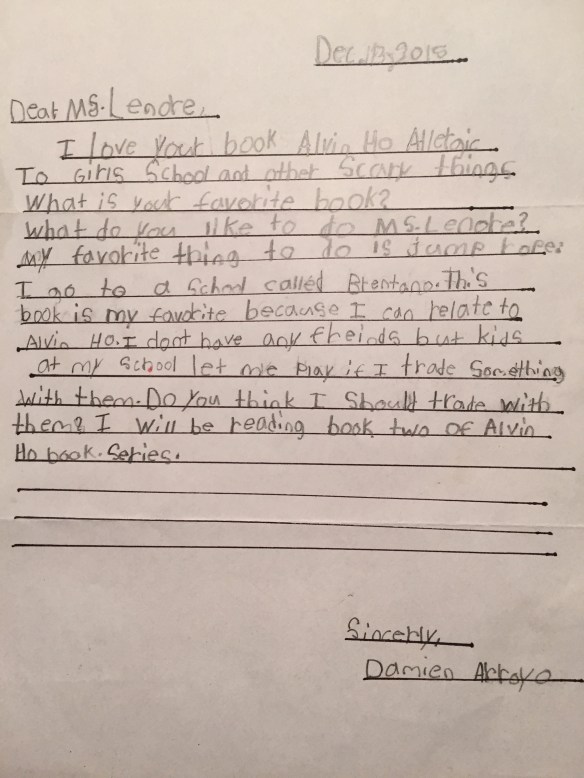 Dec. 13, 2018
Dear Ms. Lenore,
I love your book Alvin Ho Alletgic
To Girls School and other Scary things
What is your favorite book?
What do you like to do Ms. Lenore?
My favorite thing to do is jump rope.
I go to a School called Brentano. This
book is my favorite because I can relate to
Alvin Ho. I dont have any freinds but kids
at my School let me play if I trade Something
with them. Do you think I Should trade with
them? I will be reading book two of Alvin
Ho book. Series.
Sincerly,
Damien Arroyo